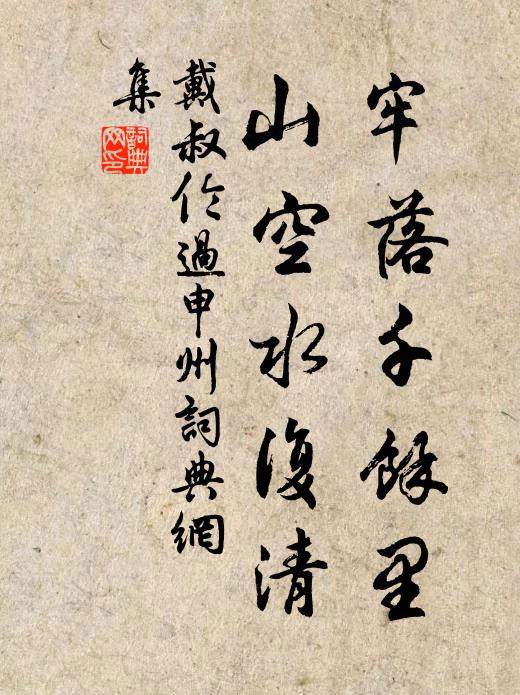 牢落千餘里
山空水復清
戴叔伦過申州詞典網
集
詞典
网印